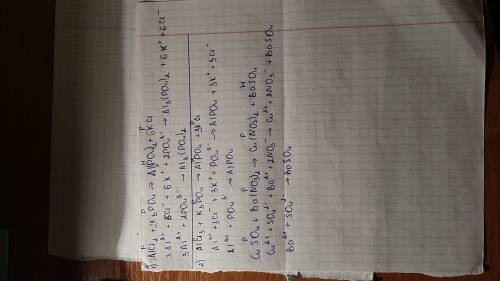 P P H P
1) AlCl2 + 2K3PO4 → Al3(PO4)2 + 6KCl
3Al2+ + 6Cl- + 6K+ + 2PO4 3- → Al3(PO4)2 + 6K+ + 6Cl-
3Al2+ + 2PO4 3- → Al3(PO4)2
2) AlCl3 + K3PO4 → AlPO4 + 3KCl
Al3+ + 3Cl- + 3K+ + PO4 3- → AlPO4 + 3K+ + 3Cl-
Al3+ + PO4 3- → AlPO4
P P P H
CuSO4 + Ba(NO3)2 → Cu(NO3)2 + BaSO4
Cu2+ + SO4 2- + Ba2+ + 2NO3- → Cu2+ + 2NO3- + BaSO4
Ba2+ + SO4 2- → BaSO4